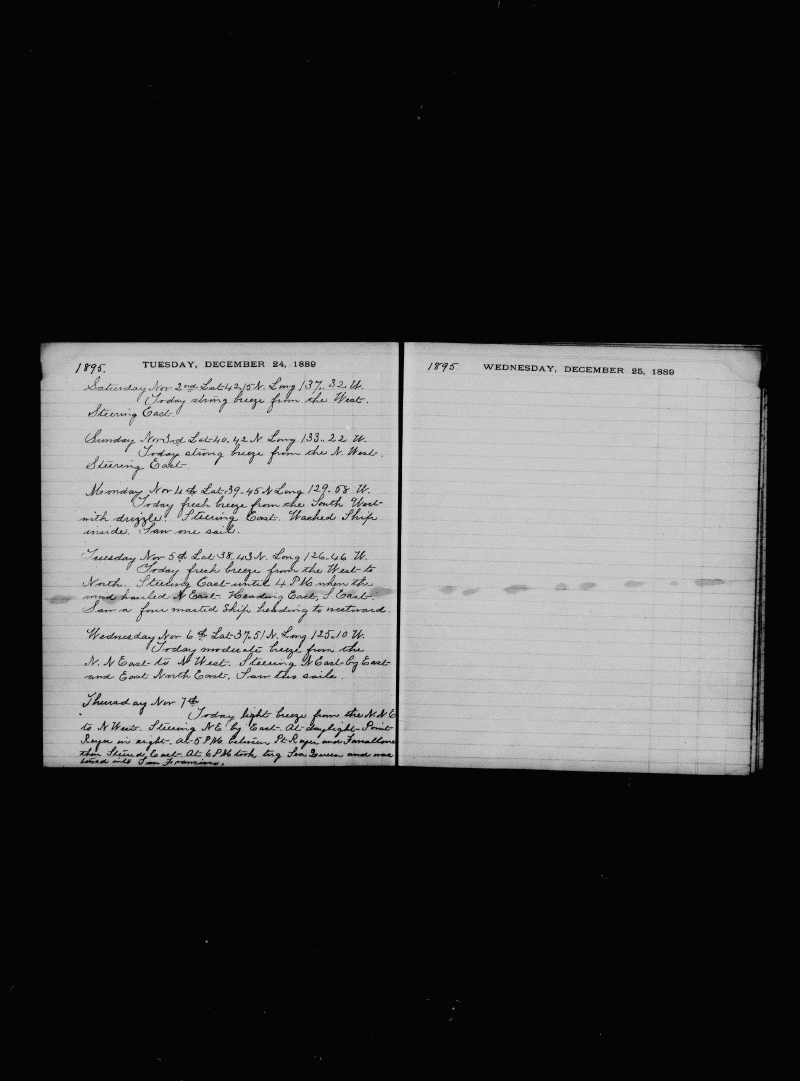 1895.
TUESDAY, DECEMBER 24, 1889
Saturday Nov 2nd Lat 42.15 N. Long 137.. 32 W.
Today strong breeze from the West.
Steering East.
Sunday Nov 3rd Lat 40.42 N Long 133.. 22 W.
Today strong breeze from the N. West.
Steering East.
Monday Nov 4th Lat 39-45 N Long 129-58 W.
Today fresh breeze from the South West
with drizzle. Steering East. Washed Ship
inside. Saw one sail.
Tuesday Nov 5th Lat 38.43 N. Long 126.46 W.
Today fresh breeze from the West to
North. Steering East until 4 P M when the
wind hauled N East. Heading East, S East.
Saw a four masted Ship heading to westward.
Wednesday Nov 6th Lat 37.51 N. Long 125.10 W.
Today moderate breeze from the
N. N East to N West. Steering N East by East
and East North East. Saw two sails.
Thursday Nov 7th
Today light breeze from the N. N E
to N West. Steering N E by East. At daylight Point
Reyes in sight. At 5 P M between Pt Reyes and Farallone
then Steered East. At 6 P M took tug Sea Queen and was
towed into San Francisco.
1895
WEDNESDAY, DECEMBER 25, 1889